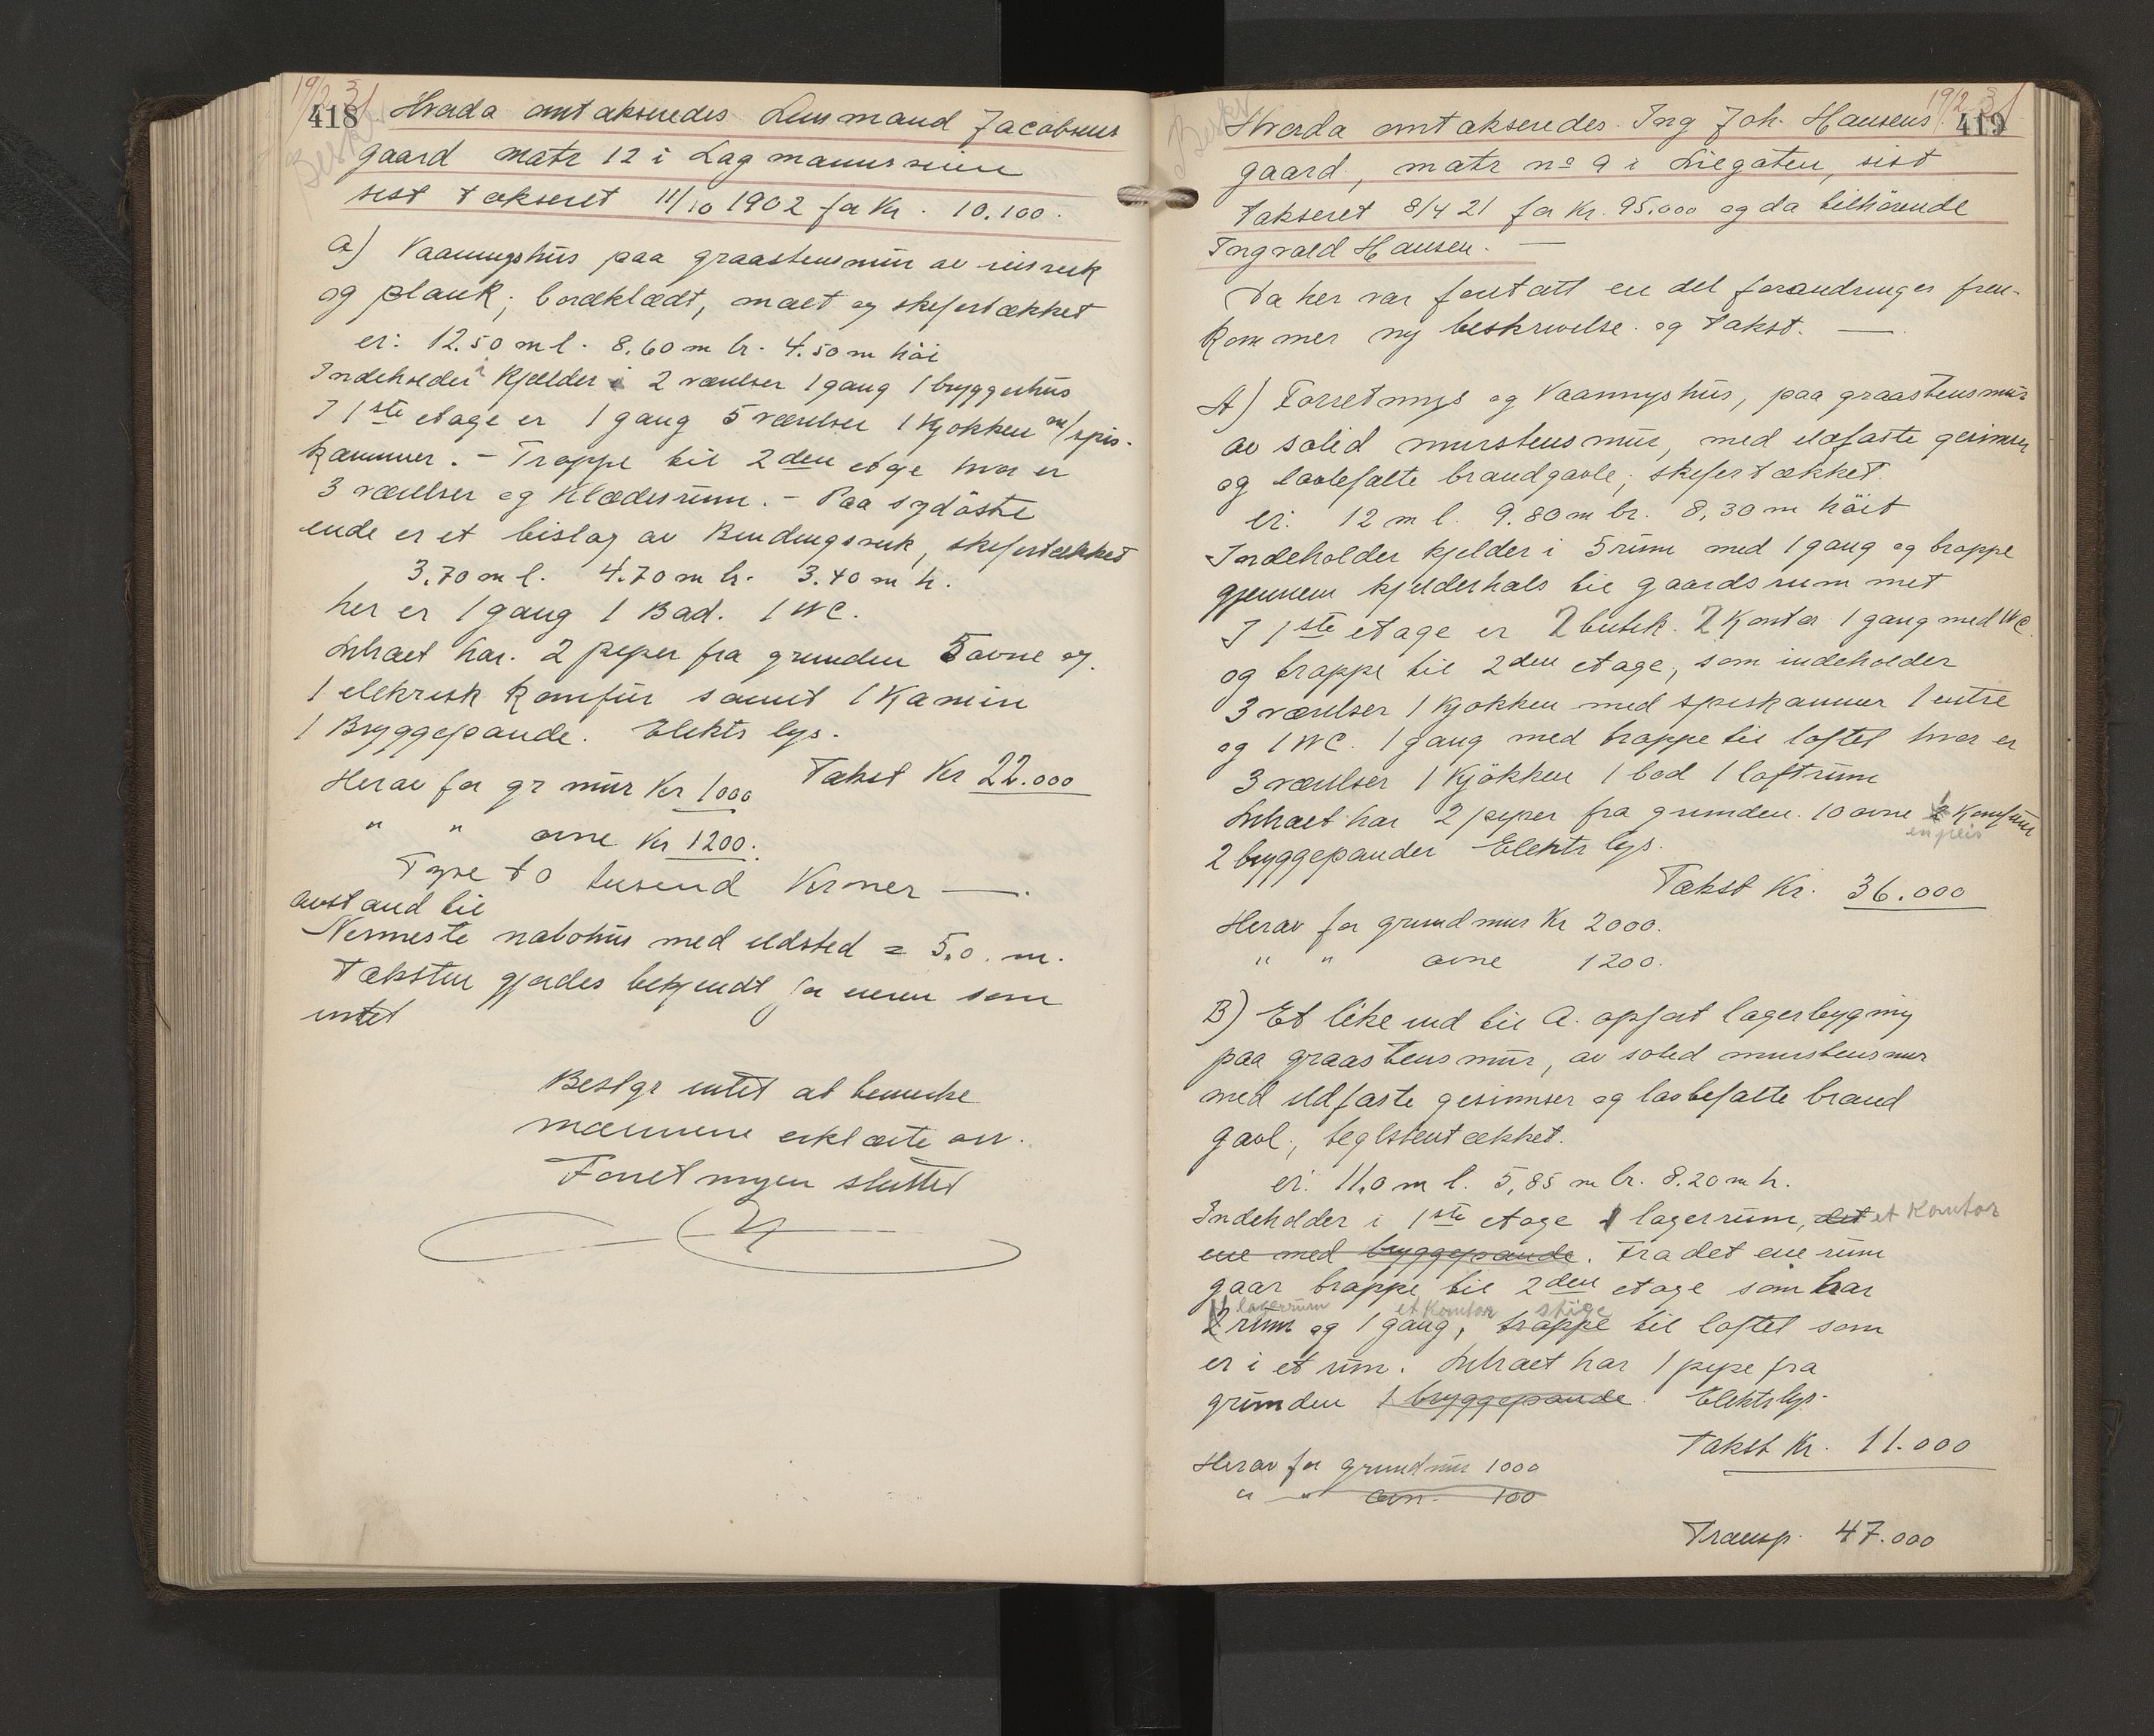 19/2 31
418 Hvorda omtakseredes Lensmand Jacobsens
gaard matr 12 i Lagmannsveien
sist takseret 11/10 1902 for Kr. 10.100.
a) Vaaningshus paa graastensmur av reisverk
og plank; bordklædt, malt og skifertækket
er: 12.50 m l. 8.60 m br. 4.50 m höi
Indeholder i Kjelder 2 værelser 1 gang 1 bryggerhus
I 1ste etage er 1 gang 5 værelser 1 Kjøkken m/spis-
kammer. - Trappe til 2den etage hvor er
3 værelser og Klædesrum. - Paa sydöstre
ende er et bislag av Bindingsverk, skifertækket
3.70 m l. 4.70 m br. 3.40 m h.
her er 1 gang 1 Bad. 1 WC.
Inhaet har. 2 piper fra grunden 5 ovne og
1 elektrisk komfur samt 1 Kamin
1 Bryggepande. Elektr lys.
Takst Kr 22.000
Herav for gr mur Kr 1000
" " ovne Kr 1200.
Tyve to tusend Kroner —.
avstand til
Nermeste nabohus med ildsted = 5,0. m.
Taksten gjordes bekjendt for eieren som
intet
Bestyr intet at bemerke
mænnene erklærte ovr.
Forretningen sluttet
19/2 31
Hvorda omtakseredes Ing Joh. Hansens 419
gaard, matr no 9 i Liegaten, sist
takseret 8/4 21 for Kr. 95.000 og da tilhörende
Ingvald Hansen. —
Da her var foretatt en del forandringer frem-
kommer ny beskrivelse og takst. —
A) Forretnings og Vaaningshus, paa graastensmur
av solid murstensmur, med ildfaste gesimser
og lovbefalte brandgavle; skifertækket.
er: 12 m l. 9.80 m br. 8,30 m höit
Indeholder kjelder i 5 rum med 1 gang og trappe
gjennem kjelderhals til gaardsrummet
I 1ste etage er 2 butik. 2 Kontor 1 gang med WC
og trappe til 2den etage, som indeholder
3 værelser 1 Kjøkken med spiskammer 1 entre
og 1 WC. 1 gang med trappe til loftet hvor er
3 værelser 1 Kjökken 1 bod 1 loftrum
Inhaet har 2 piper fra grunden. 10 ovne 1 Komfur
en peis
2 bryggepander Elektr lys.
Takst Kr. 36.000
Herav for grundmur Kr 2000.
" " ovne 1200.
B) Et like ind til A. opfört lagerbygning
paa graastensmur, av solid murstensmur
med ildfaste gesimser og lovbefalte brand
gavl; teglstentækket.
er: 11,0 m l. 5,85 m br. 8.20 m h.
Indeholder i 1ste etage 1 lagerrum, det et Kontor
ene med bryggepande. Fra det ene rum
gaar trappe til 2den etage som har
lagerrum et Kontor stige
2 rum og 1 gang, trappe til loftet som
er i et rum. Inhaet har 1 pipe fra
grunden 1 bryggepande. Elektr lys.
Takst Kr. 11.000
Herav for grundmur 1000
" " ovn. 100
Transp. 47.000